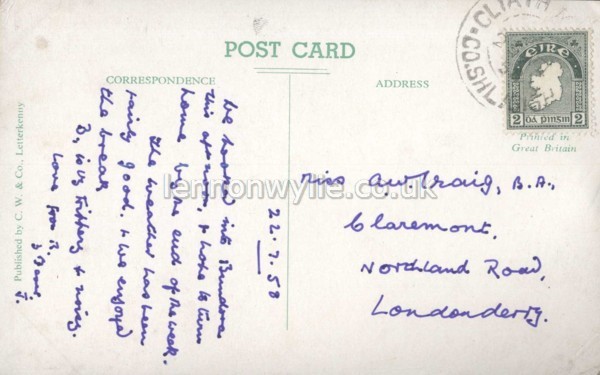 POST CARD
CORRESPONDENCE
ADDRESS
CO. SHLIGIGH
CLIATH
ÉIRE
2 DÁ PINGIN 2
Printed in
Great Britain
Published by C. W. & Co., Letterkenny
22.7.50
We hooked into Bundoran
this afternoon, & hope to turn
home by the end of the week.
The weather has been
fairly good, & we enjoyed
the break.
B. is &
Love from B.
J.
Miss A.W. Craig, B.A.,
Claremont,
Northland Road,
Londonderry.
lennonwylie.co.uk